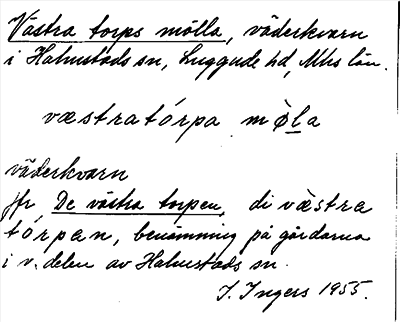 Västra torps mölla, väderkvarn
i Halmstads sn, Luggude hd, Mhs län.
væstratórpa mø̀la
väderkvarn
jfr De västra torpen, di væstra
tórpan, benämning på gårdarna
i v. delen av Halmstads sn.
I. Ingers 1955.